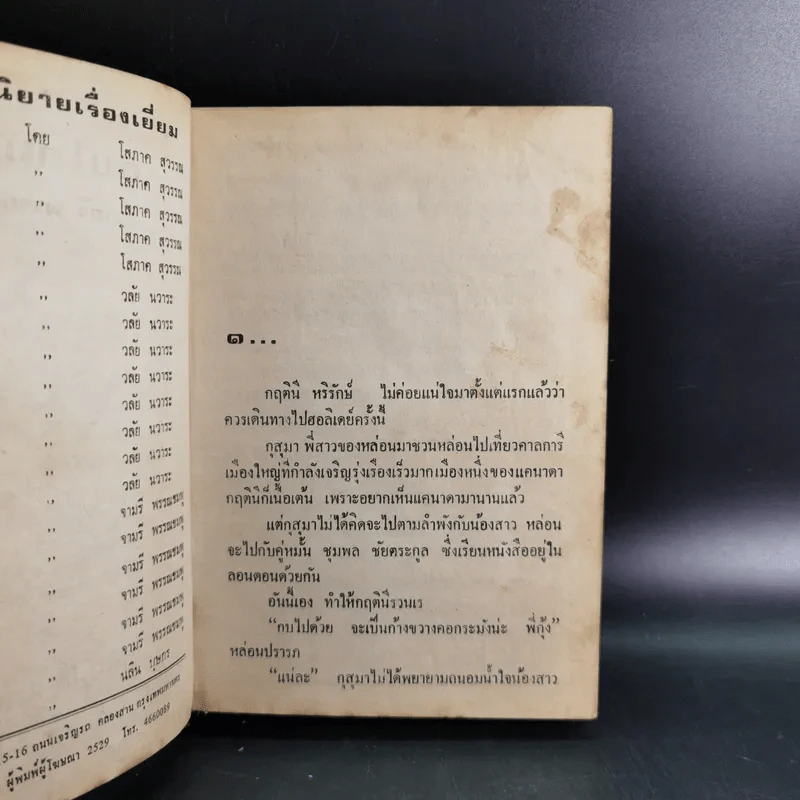 นิยายเรื่องเยี่ยม
โดย โสภาค สุวรรณ
,, โสภาค สุวรรณ
,, โสภาค สุวรรณ
,, โสภาค สุวรรณ
,, โสภาค สุวรรณ
,, วลัย นวาระ
,, วลัย นวาระ
,, วลัย นวาระ
,, วลัย นวาระ
,, วลัย นวาระ
,, วลัย นวาระ
,, วลัย นวาระ
,, จามรี พรรณชมพู
,, จามรี พรรณชมพู
,, จามรี พรรณชมพู
,, จามรี พรรณชมพู
,, จามรี พรรณชมพู
,, นลิน บุษกร
5-16 ถนนเจริญรถ คลองสาน กรุงเทพมหานคร
ผู้พิมพ์ผู้โฆษณา 2529 โทร. 4660089
๑...
กฤตินี หริรักษ์ ไม่ค่อยแน่ใจมาตั้งแต่แรกแล้วว่า
ควรเดินทางไปฮอลิเดย์ครั้งนี้
กุสุมา พี่สาวของหล่อนมาชวนหล่อนไปเที่ยวคาลการี
เมืองใหญ่ที่กำลังเจริญรุ่งเรืองเร็วมากเมืองหนึ่งของแคนาดา
กฤตินีก็เนื้อเต้น เพราะอยากเห็นแคนาดามานานแล้ว
แต่กุสุมาไม่ได้คิดจะไปตามลำพังกับน้องสาว หล่อน
จะไปกับคู่หมั้น ชุมพล ชัยตระกูล ซึ่งเรียนหนังสืออยู่ใน
ลอนดอนด้วยกัน
อันนี้เอง ทำให้กฤตินีรวนเร
“กบไปด้วย จะเป็นก้างขวางคอกระมังน่ะ พี่กุ้ง”
หล่อนปรารภ
“แน่ละ” กุสุมาไม่ได้พยายามถนอมน้ำใจน้องสาว